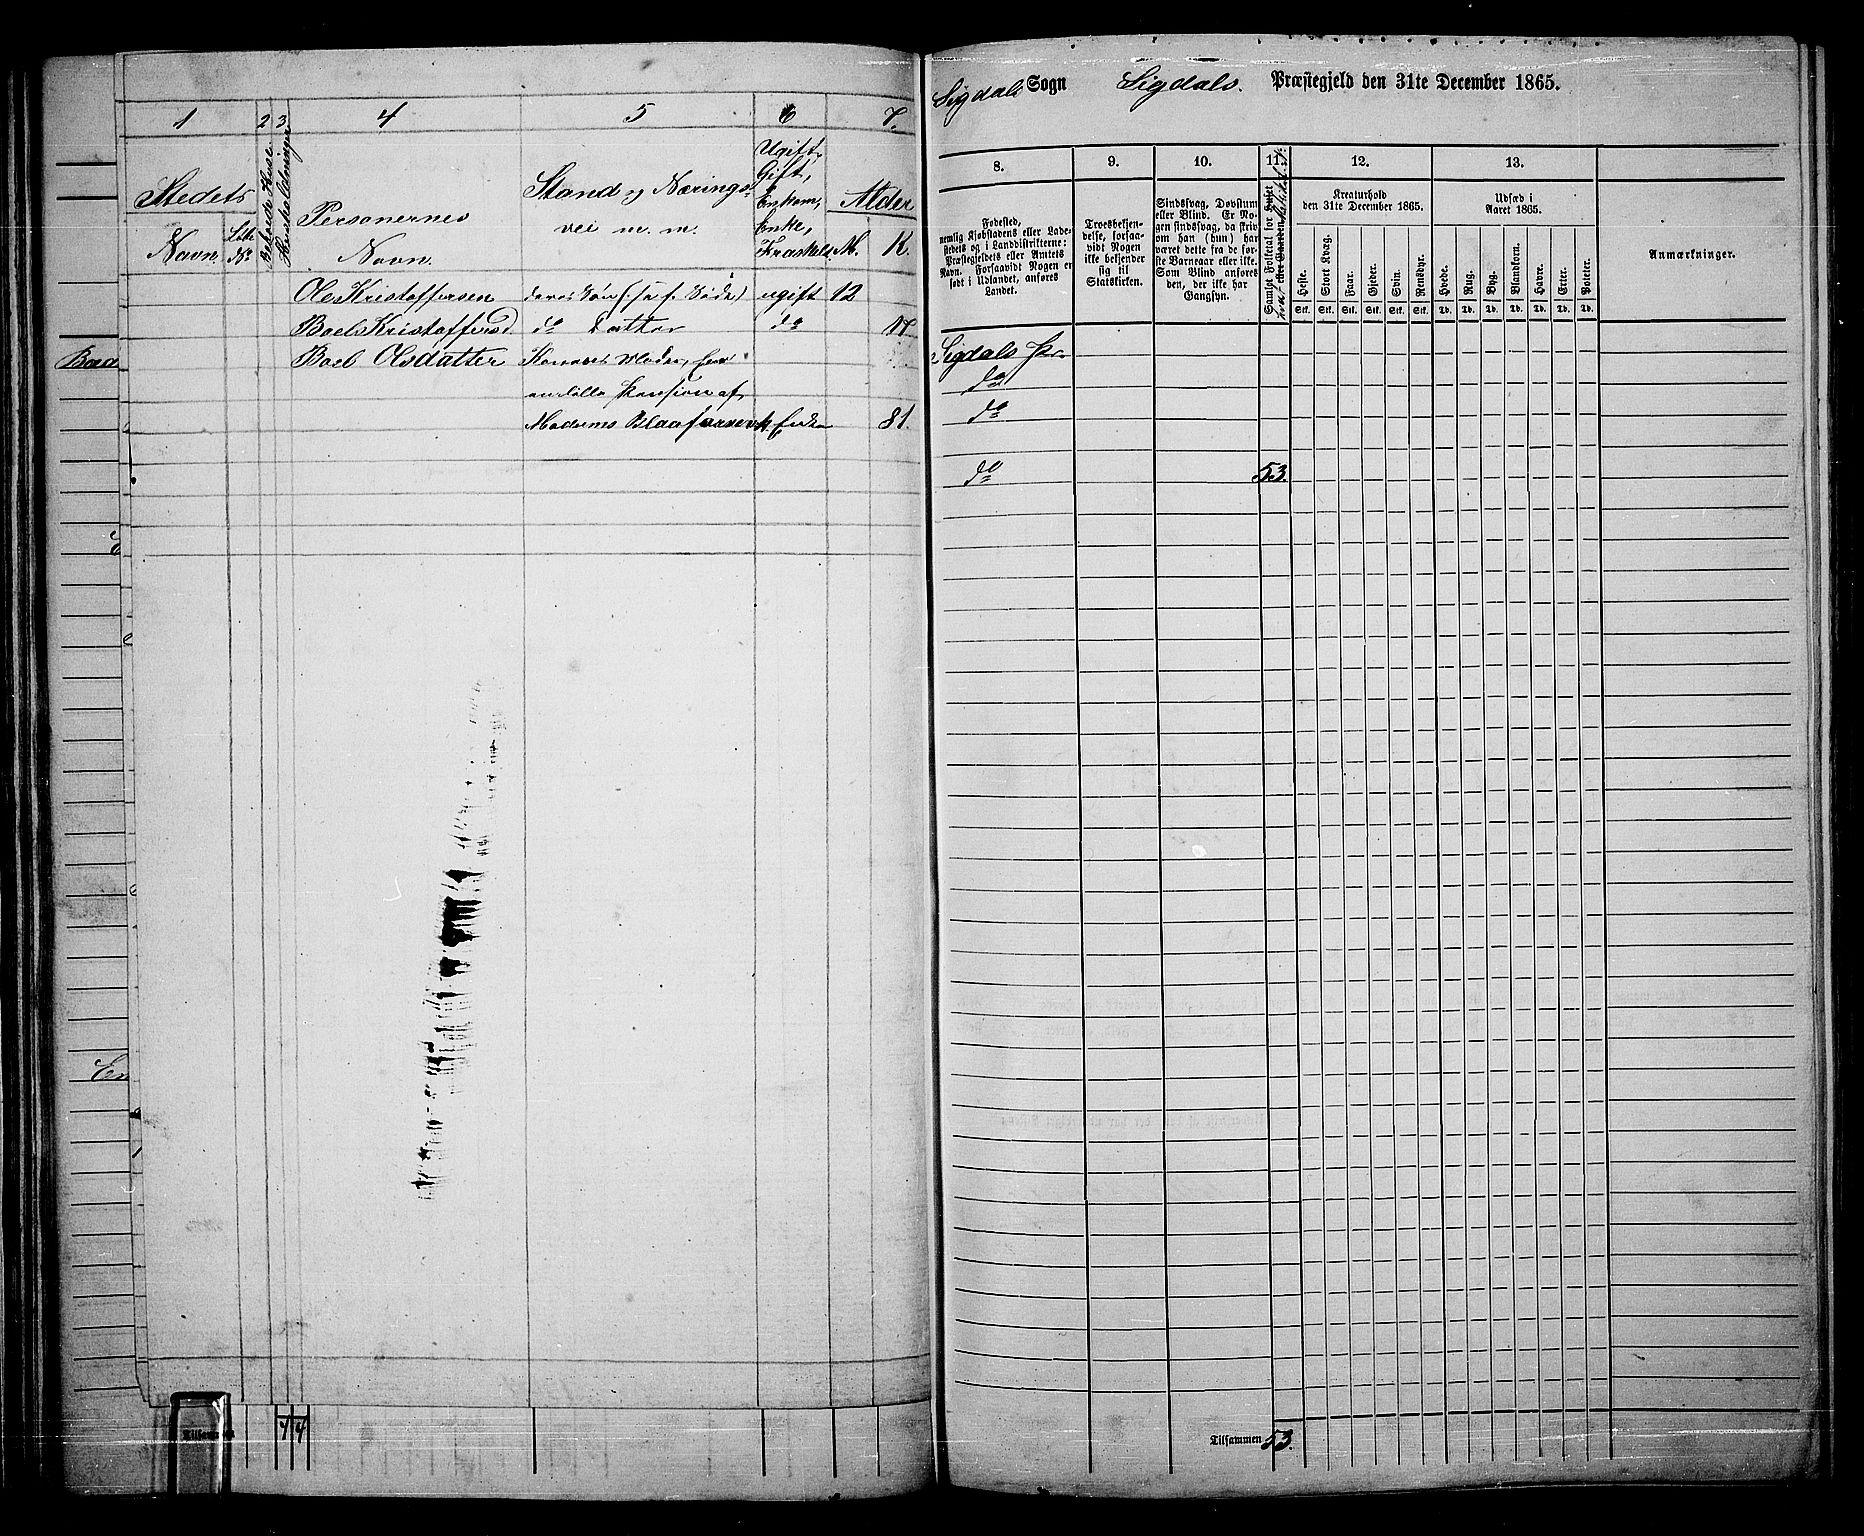 1 2 3. 4 5 6 7.
Stedets
Navn.
Beboede Huse.
Husholdninger
Personernes
Navn.
Stand og Nærings-
vei m. m.
Ugift,
Gift,
Enkem,
Enke,
Fraskilt.
Alder
M. K.
Ole Kristoffersen deres Søn ugift 12
Boel Kristoffersd do Datter do
Boel Olsdatter Konens Moder,
Pension af
Modums Blaafarveværk Enke 81.
Boed
En
Tilsammen 4 4
Sigdals Sogn Sigdals. Præstegjeld den 31te December 1865.
8. 9. 10. 11. 12. 13.
Fødested,
nemlig Kjøbstadens eller Lade-
stedets og i Landdistrikterne:
Præstegjeldets eller Amtets
Navn. Forsaavidt Nogen er
født i Udlandet, anføres
Landet.
Troesbekjen-
delse, forsaa-
vidt Nogen
ikke bekjender
sig til
Statskirken.
Sindssvag, Døvstum
eller Blind. Er No-
gen sindssvag, da skriv
om han (hun) har
været dette fra de før-
ste Barneaar eller ikke.
Som Blind anføres
den, der ikke har
Gangsyn.
Samlet Folketal for Huset
eller Gaarden
Kreaturhold
den 31te December 1865.
Heste. Stort Kvæg. Faar. Gjeder. Svin. Rensdyr.
Stk. Stk. Stk. Stk. Stk. Stk.
Udsæd i
Aaret 1865.
Hvede. Rug. Byg. Blandkorn. Havre. Erter. Poteter.
Td. Td. Td. Td. Td. Td. Td.
Anmærkninger.
Sigdals Pr.
do
do
do 53.
Tilsammen 53.